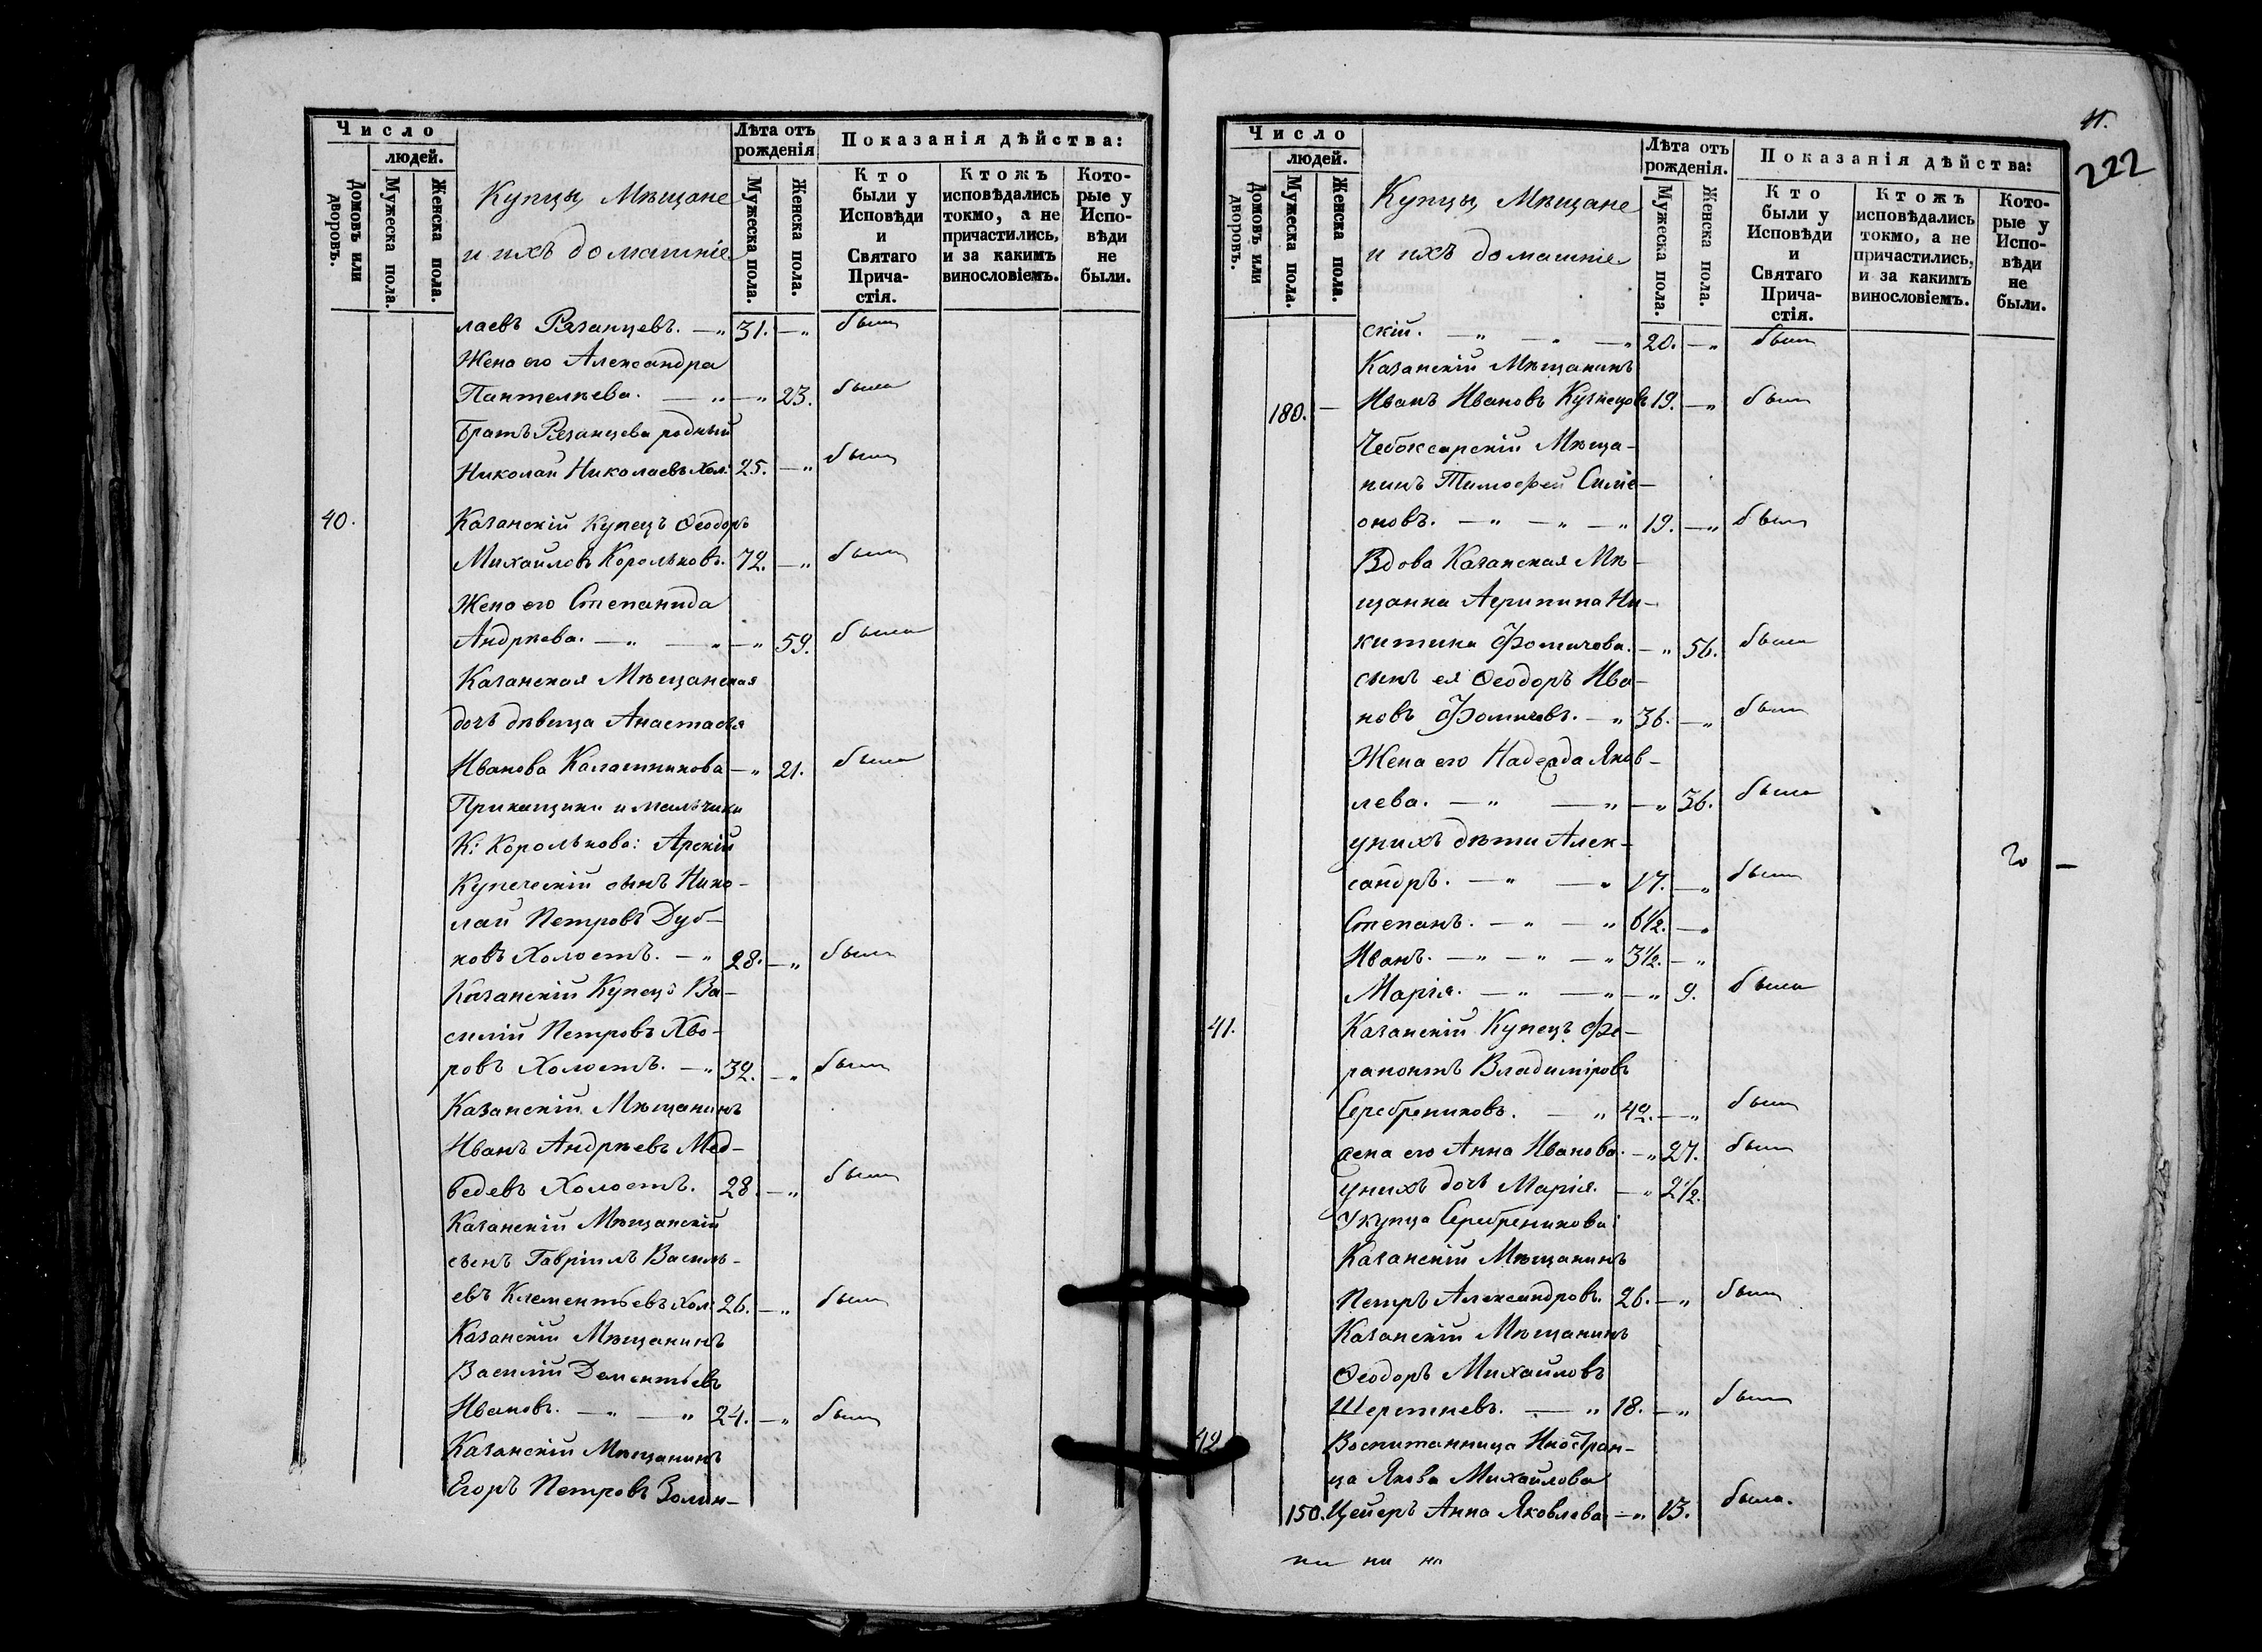 Число
людей.
Домовъ или дворовъ.
Мужеска пола.
Женска пола.
Купцы, Мѣщане
и ихъ домашніе
Лѣта отъ
рожденія
Мужеска пола.
Женска пола.
Показанія дѣйства:
Кто
были у
Исповѣди
и
Святаго
Прича-
стія.
Ктожъ
исповѣдались
токмо, а не
причастились,
и за какимъ
винословіемъ.
Кото-
рые у
Испо-
вѣди
не
были.
лаевъ Рязанцевъ. — „ 31. — „ былъ
Жена его Александра
Пантелѣева. — „ — „ 23. была
Братъ Рязанцева родный
Николай Николаевъ Хол: 25. — „ былъ
40. Казанскій Купецъ Ѳеодоръ
Михайловъ Корольковъ. 72. — „ былъ
Жена его Степанида
Андрѣева. — „ — „ — „ 59. была
Казанская Мѣщанская
дочь дѣвица Анастасья
Иванова Калашникова — „ 21. была
Прикащики и мальчики
К: Королькова: Арскій
Купеческій сынъ Нико-
лай Петровъ Дуб-
ковъ Холостъ. — „ 28. — „ былъ
Казанскій Купецъ Ва-
силій Петровъ Хво-
ровъ Холостъ. — „ 32. — „ былъ
Казанскій Мѣщанинъ
Иванъ Андрѣевъ Мед-
ведевъ Холостъ. 28. — „ былъ
Казанскій Мѣщанскій
сынъ Гавріилъ Василь-
евъ Клементьевъ Хол: 26. — „ былъ
Казанскій Мѣщанинъ
Василій Дементьевъ
Ивановъ. — „ — „ 24. — „ былъ
Казанскій Мѣщанинъ
Егоръ Петровъ Золин-
11.
222
Число
людей.
Домовъ или дворовъ.
Мужеска пола.
Женска пола.
Купцы, Мѣщане
и ихъ домашніе
Лѣта отъ
рожденія.
Мужеска пола.
Женска пола.
Показанія дѣйства:
Кто
были у
Исповѣди
и
Святаго
Прича-
стія.
Ктожъ
исповѣдались
токмо, а не
причастились,
и за какимъ
винословіемъ.
Кото-
рые у
Испо-
вѣди
не
были.
скій. — „ — „ — „ 20. — „ былъ
Казанскій Мѣщанинъ
180. — Иванъ Ивановъ Кузнецовъ 19. — „ былъ
Чебоксарскій Мѣща-
нинъ Тимофей Симе-
оновъ. — „ — „ — „ 19. — „ былъ
Вдова Казанская Мѣ-
щанка Агрипина Ни-
китина Фомичова. — „ 56. была
сынъ ея Ѳеодоръ Ива-
новъ Фомичовъ. — „ 36. — „ былъ
Жена его Надежда Яков-
лева. — „ — „ — „ 36. была
у нихъ дѣти Алек-
сандръ. — „ — „ 17. — „ былъ
Степанъ. — „ — „ 6½. — „
Иванъ. — „ — „ — „ 3½. — „
Марія. — „ — „ — „ 9. была
41. Казанскій Купецъ Фе-
рапонтъ Владиміровъ
Серебрениковъ. — „ 42. — „ былъ
жена его Анна Иванова. — „ 27. была
у нихъ дочь Марія. — „ 2½.
У купца Серебреникова:
Казанскій Мѣщанинъ
Петръ Александровъ. 26. — „ былъ
Казанскій Мѣщанинъ
Ѳеодоръ Михайловъ
Шерстневъ. — „ 18. — „ былъ
42 Воспитанница Иностран-
ца Якова Михайлова
150. Цейеръ Анна Яковлева — „ 13. была.